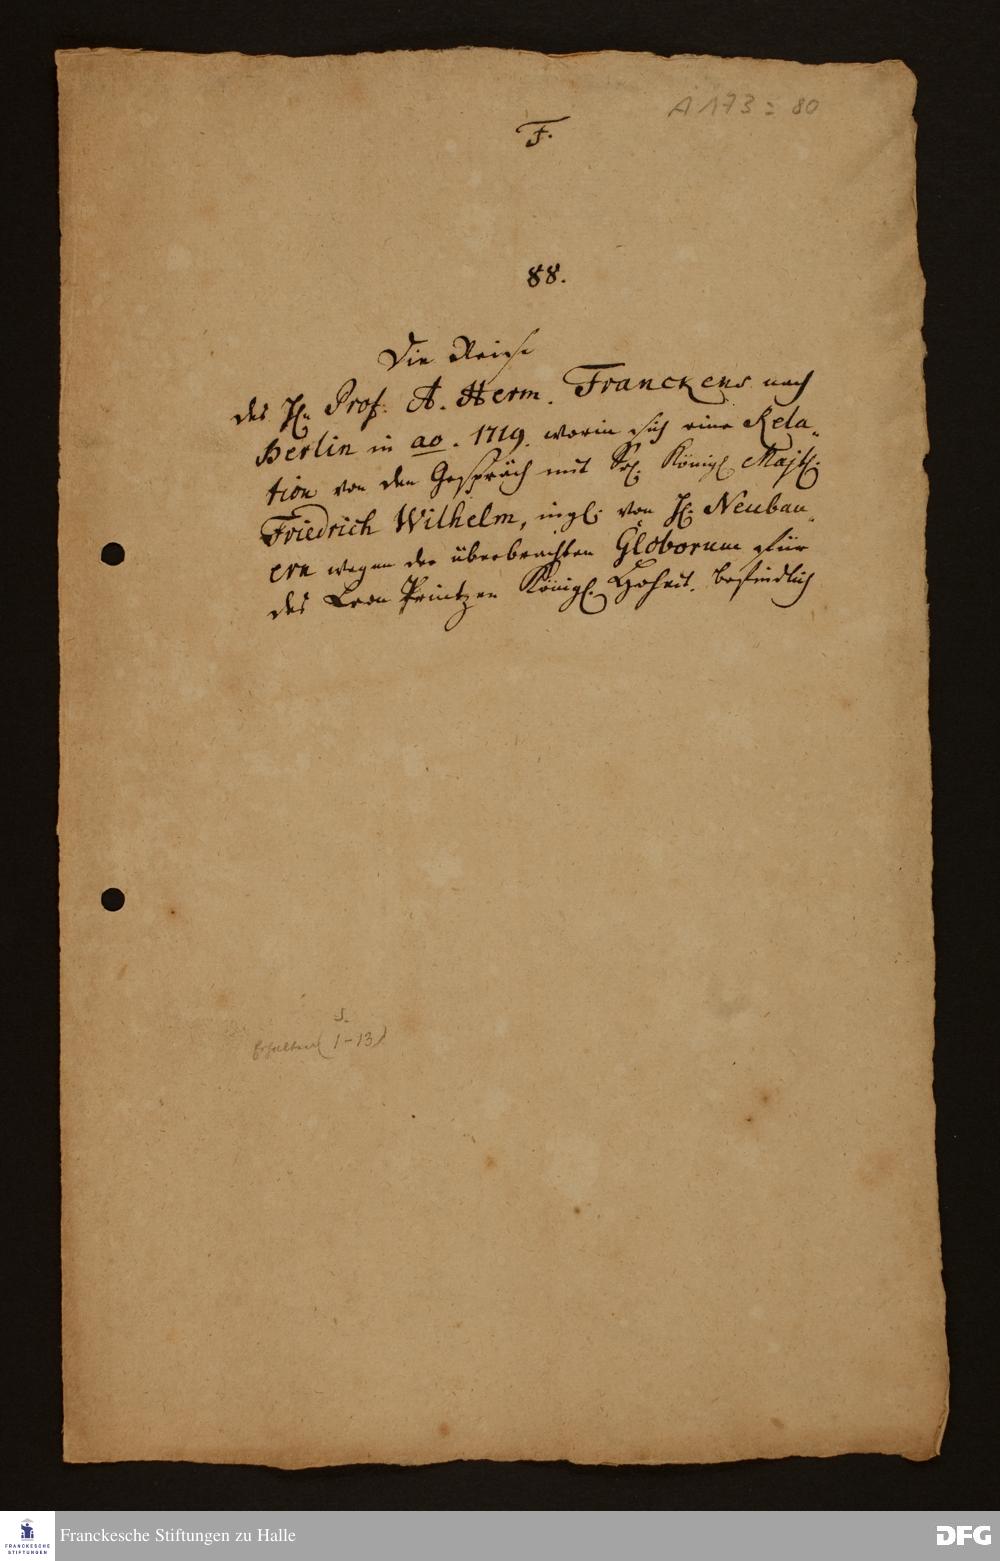 A 173 : 80
F.
88.
Die Reise
des H. Prof. A. Herm. Franckens nach
Berlin in ao. 1719. worin sich eine Rela-
tion von den Gespräch mit Sr. Königl. Majt.
Friedrich Wilhelm, ingl. von H. Neubau-
ern wegen der überbrachten Globorum für
des Cron Printzen Königl. Hoheit. befindlich
S.
Erhalten (1-13)
FRANCKESCHE
STIFTUNGEN
Franckesche Stiftungen zu Halle
DFG